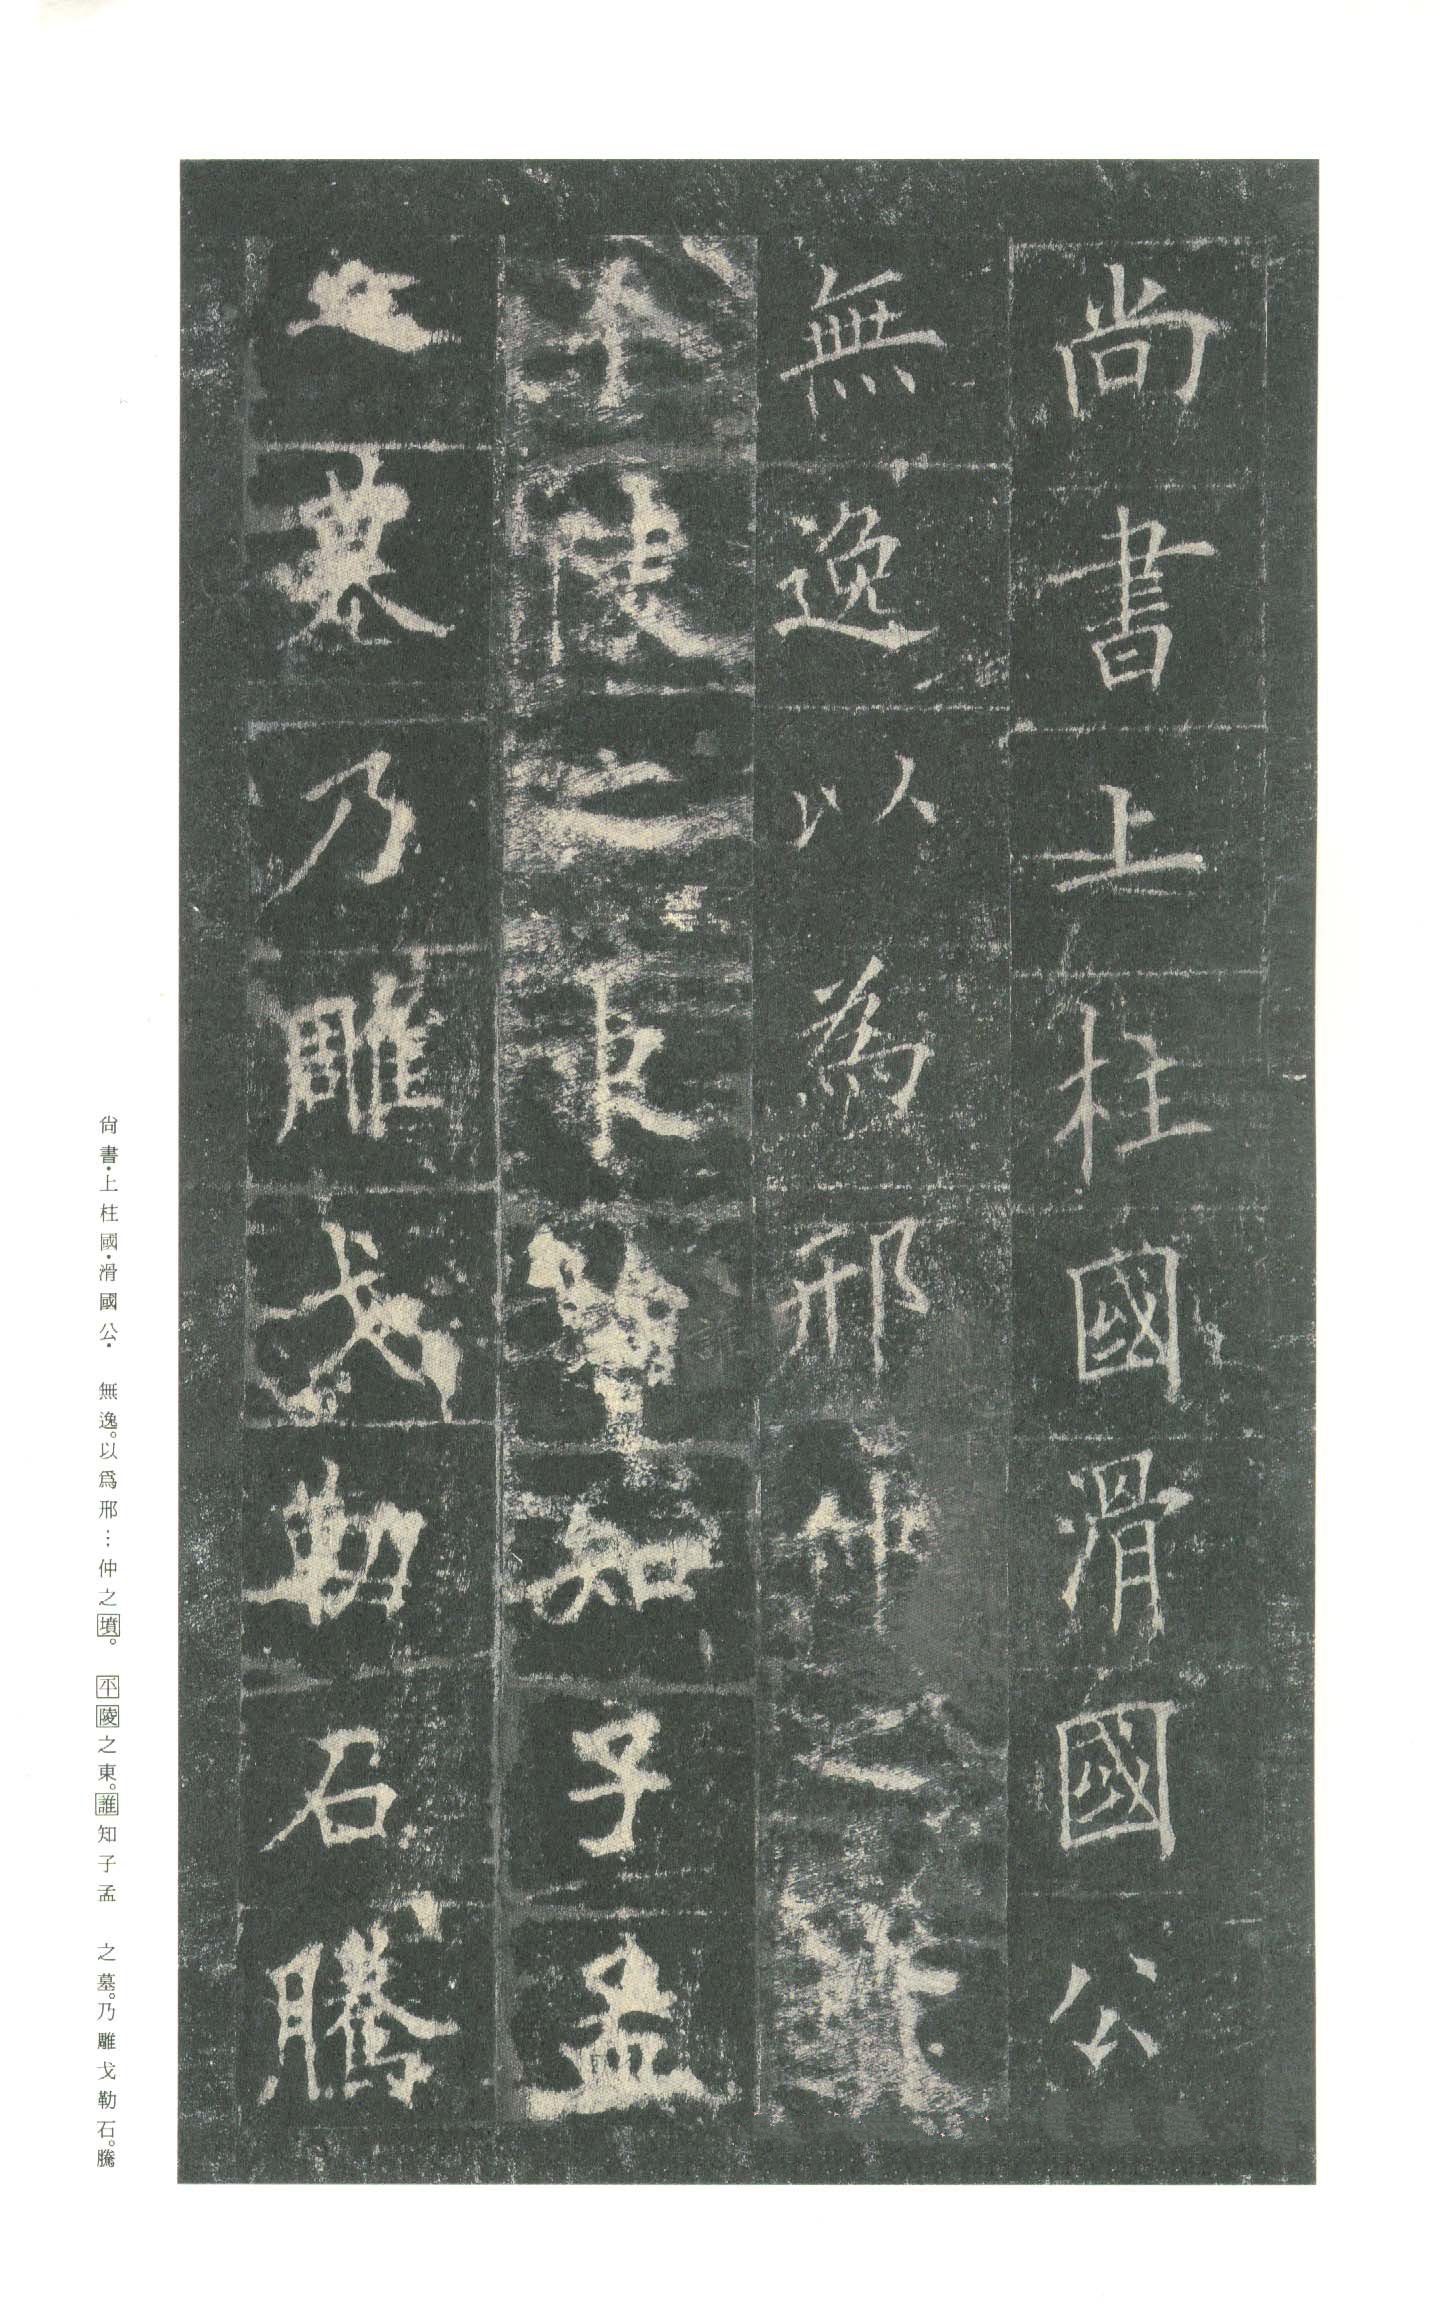 尚書上柱國滑國公
無逸以為邢仲之
陵之東知子孟
之墓乃雕戈勒石騰
尚書·上柱國·滑國公· 無逸。以爲邢…仲之墳。 平陵之東。誰知子孟 之墓。乃雕戈勒石。騰